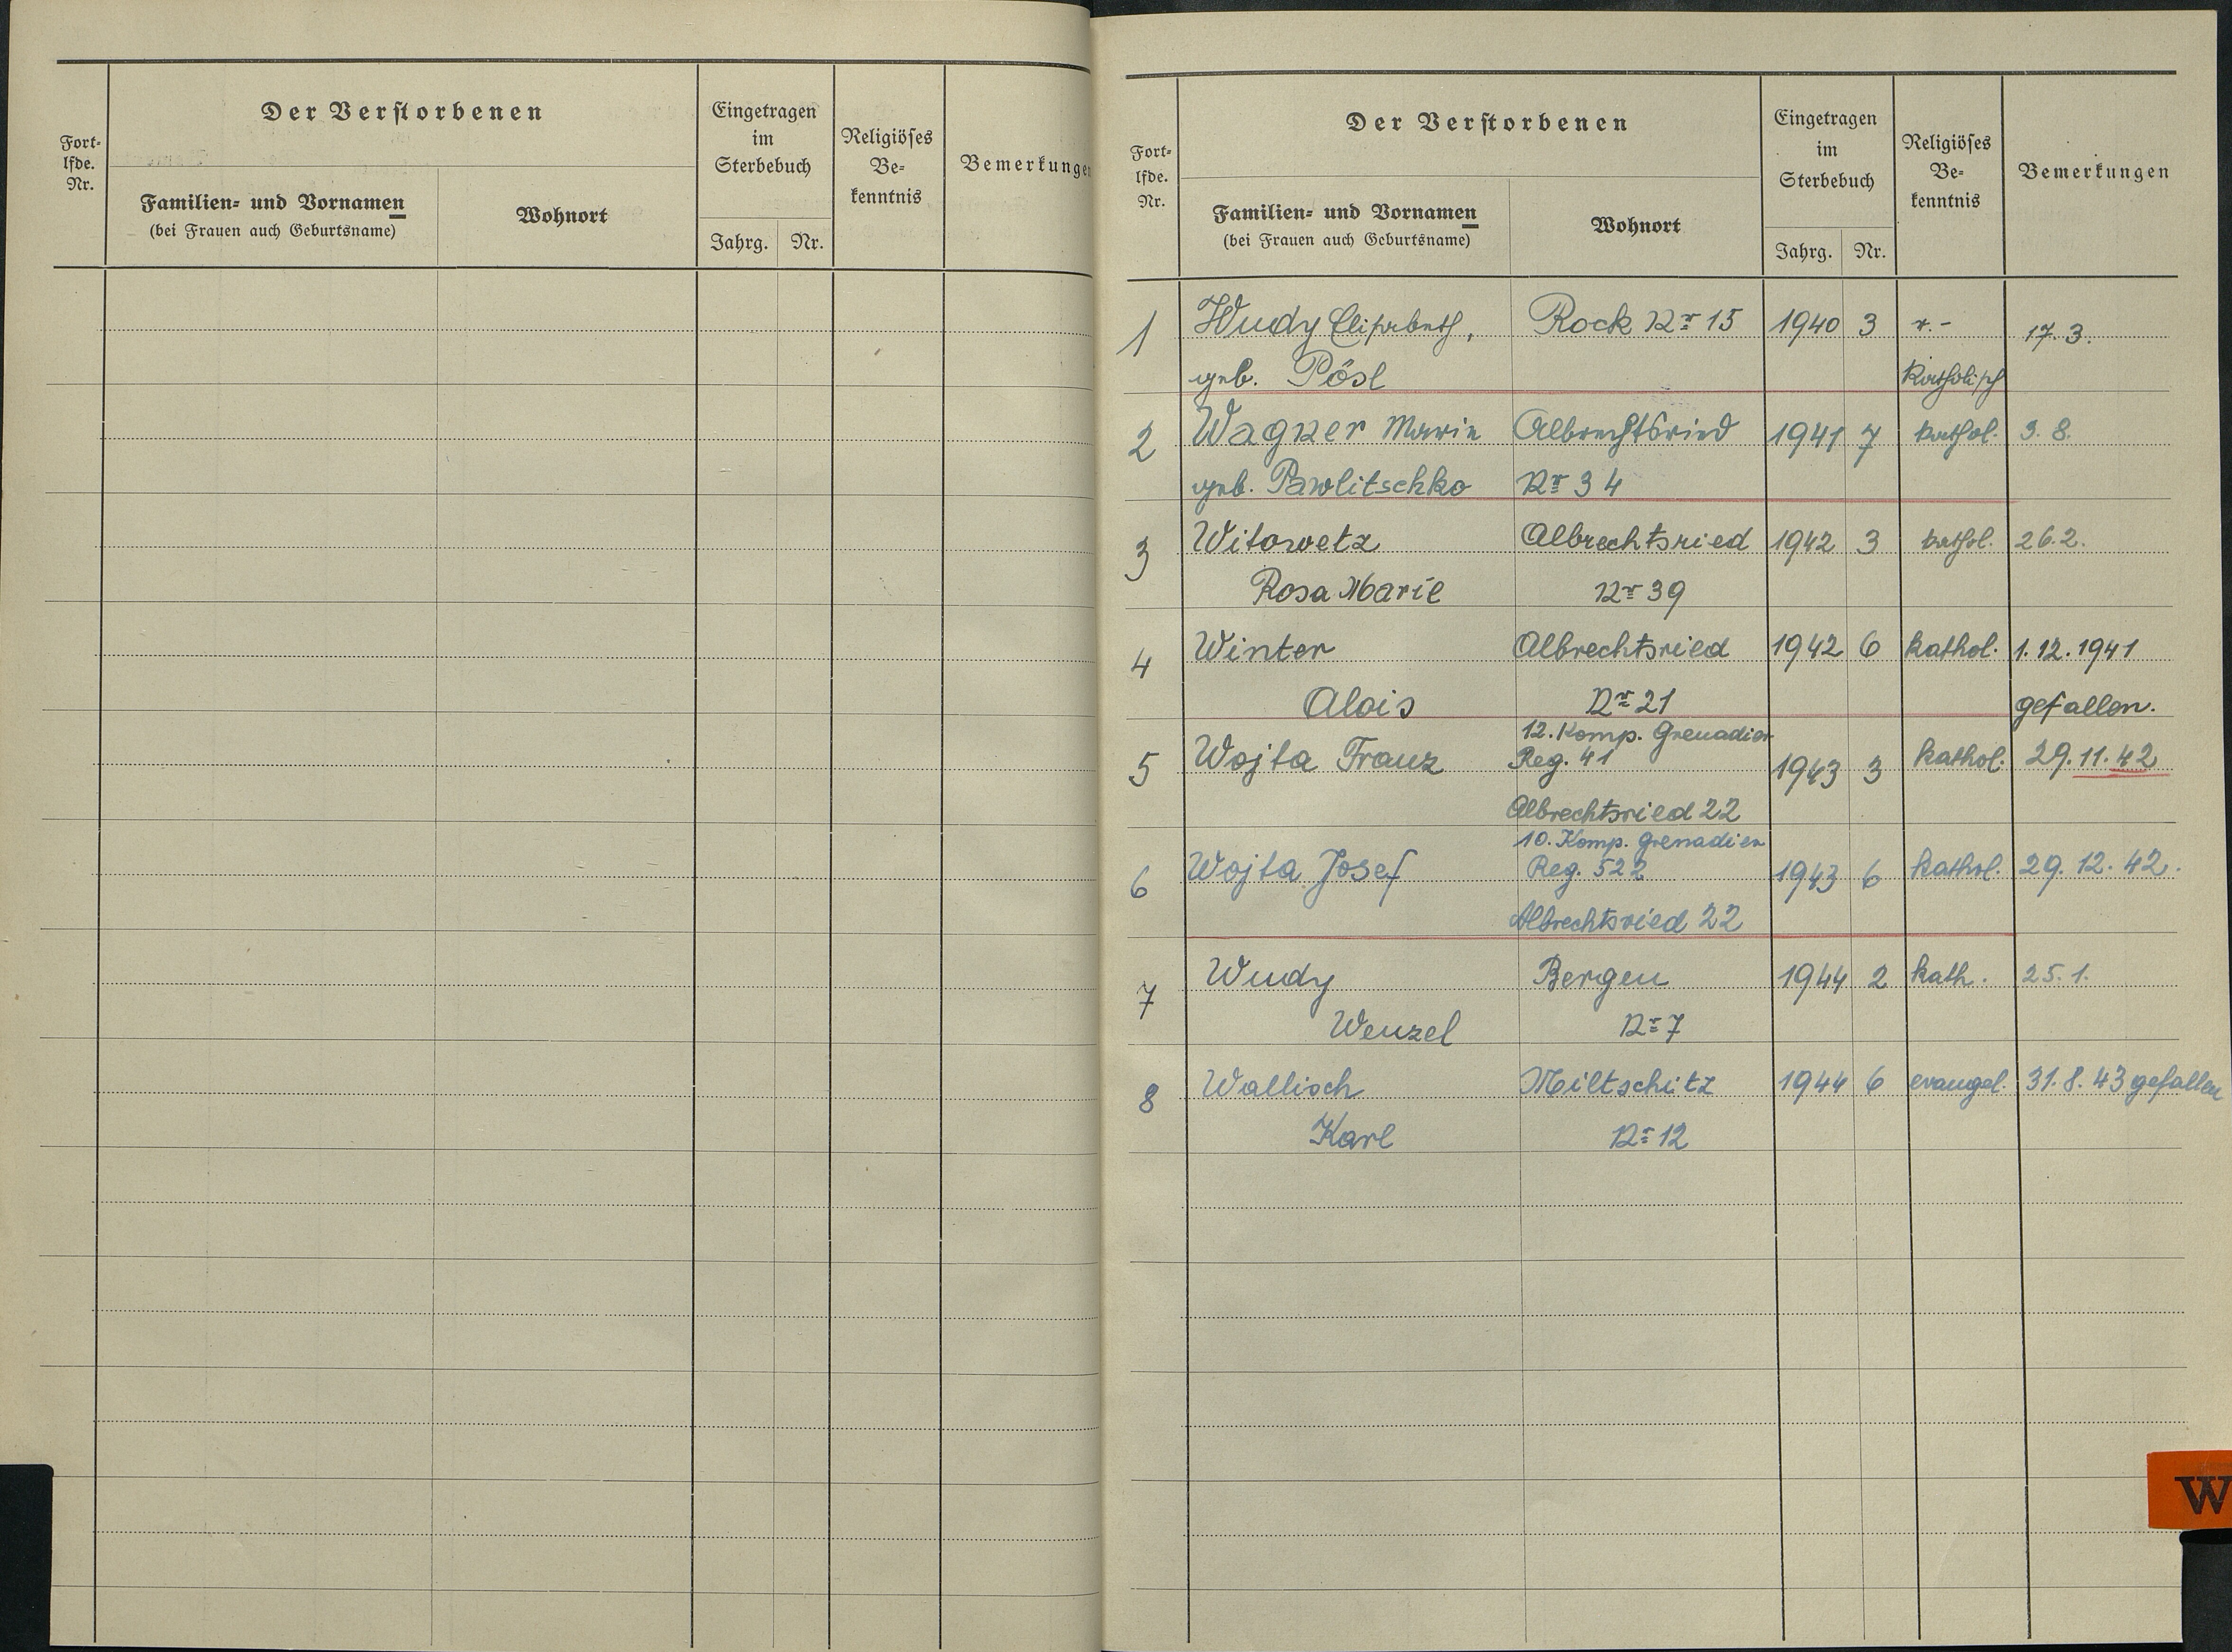 Fort-
lfde.
Nr.
Der Verstorbenen
Familien- und Vornamen
(bei Frauen auch Geburtsname)
Wohnort
Eingetragen
im
Sterbebuch
Jahrg. Nr.
Religiöses
Be-
kenntnis
Bemerkungen
Fort-
lfde.
Nr.
Der Verstorbenen
Familien- und Vornamen
(bei Frauen auch Geburtsname)
Wohnort
Eingetragen
im
Sterbebuch
Jahrg. Nr.
Religiöses
Be-
kenntnis
Bemerkungen
1 Wudy Elisabeth, Rock Nr 15 1940 3 r.- 17.3.
geb. Pösl katholisch
2 Wagner Marie Albrechtsried 1941 7 kathol. 3.8.
geb. Pawlitschko Nr 34
3 Witowetz Albrechtsried 1942 3 kathol. 26.2.
Rosa Marie Nr 39
4 Winter Albrechtsried 1942 6 kathol. 1.12.1941
Alois Nr 21 gefallen.
12. Komp. Grenadier
5 Wojta Franz Reg. 41 1943 3 kathol. 29.11.42
Albrechtsried 22
10. Komp. Grenadier
6 Wojta Josef Reg. 522 1943 6 kathol. 29.12.42.
Albrechtsried 22
7 Wudy Bergen 1944 2 kath. 25.1.
Wenzel Nr 7
8 Wallisch Miltschitz 1944 6 evangel. 31.8.43 gefallen
Karl Nr 12
W